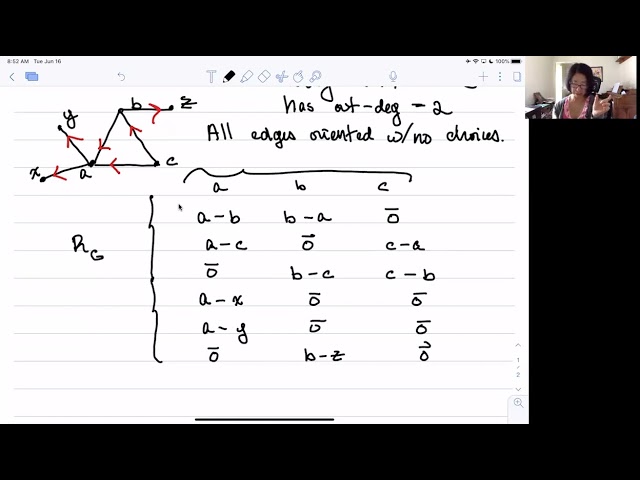 8:52 AM Tue Jun 16
100%
has out-deg = 2
All edges oriented w/no choices.
y b z
x a c
a b c
a-b b-a 0̅
a-c 0⃗ c-a
R_G
0̅ b-c c-b
a-x 0̅ 0̅
a-y 0̅ 0̅
0̅ b-z 0⃗
1
2